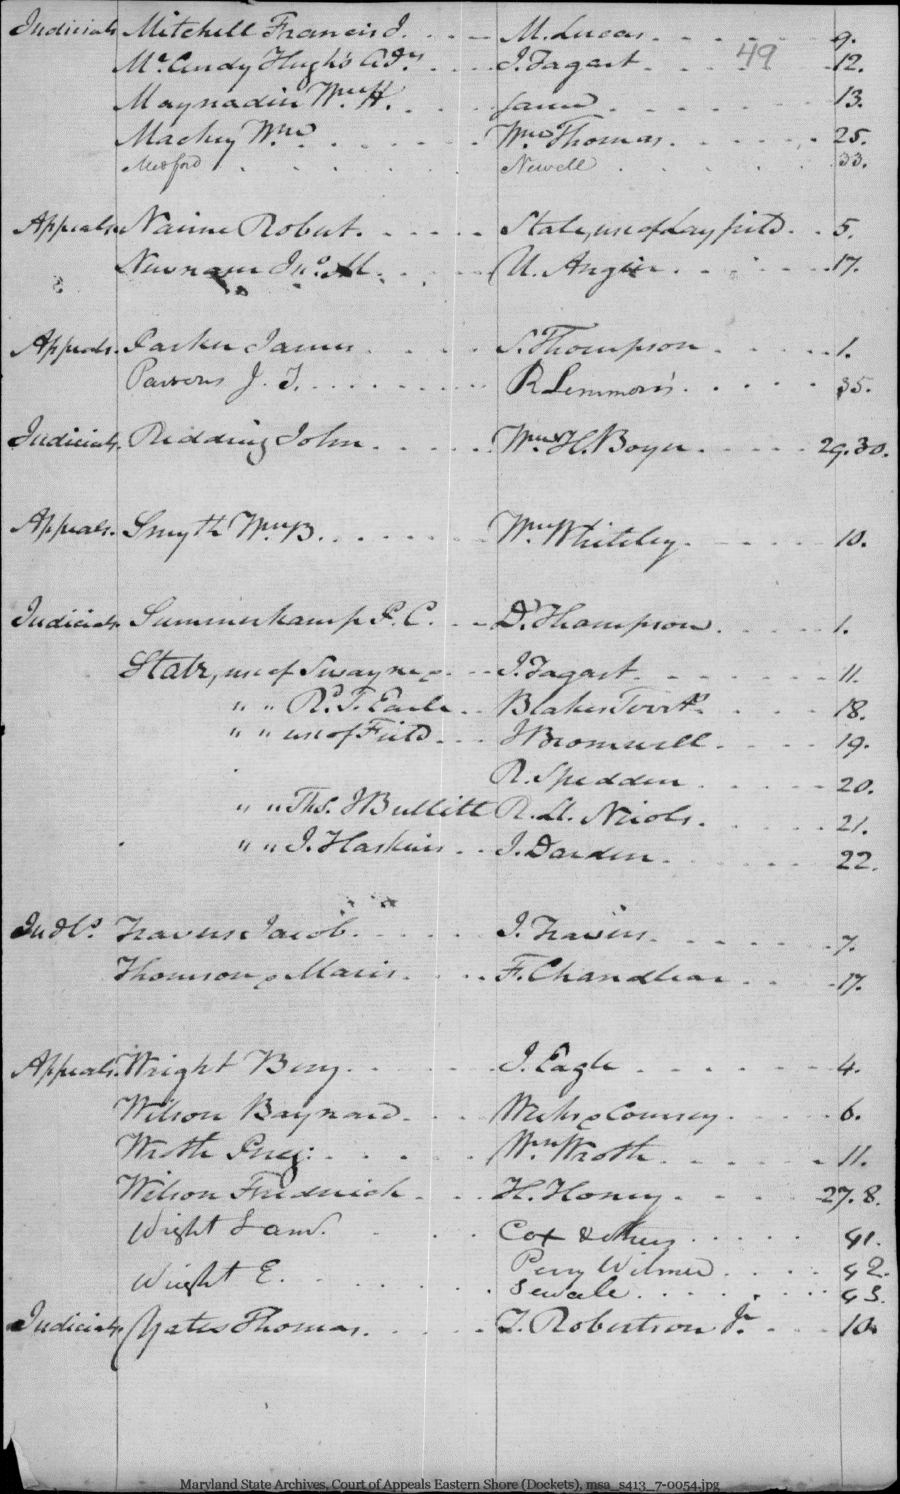 49
Judicials Mitchell Francis J. M. Lucas 9.
McCurdy Hugh's Adrs J. Tagart 12.
Maynadier Wm H. Same 13.
Mackey Wm Wm Thomas 25.
Medford Newell 33.
Appeals Nairne Robert. State, use of Layfield 5.
Newnam Jno. M. U. Angier 17.
Appeals. Parker James S. Thompson 1.
Parrons J. T. R Lemmon's 35.
Judicials. Redding John. Wm H. Boyer 29.30.
Appeals. Smyth Wm B. Wm Whiteley. 10.
Judicials. Summerkamp P. C. D. Thompson 1.
State, use of Swayne J. Tagart. 11.
" " R. T. Earle Blakes Terrts. 18.
" " use of Field J Bromwell 19.
R. Spedden 20.
" " Ths. J Bullitt R. Ll. Nicols. 21.
" " J. Haskins J. Darden 22.
Judls. Travers Jacob. J. Travers. 7.
Thomson & Maris. F. Chandlear 17.
Appeals. Wright Benj. J. Eagle 4.
Wilson Baynard Coursey 6.
Wroth Wm. Wroth 11.
Wilson Frederick H. Honey. 27.8.
Wright Saml. Cox & others 41.
Perry Wilmer 42.
Wright E. Sewale 43.
Judicials Yates Thomas. T. Robertson Jr. 10.
Maryland State Archives, Court of Appeals Eastern Shore (Dockets), msa_s413_7-0054.jpg